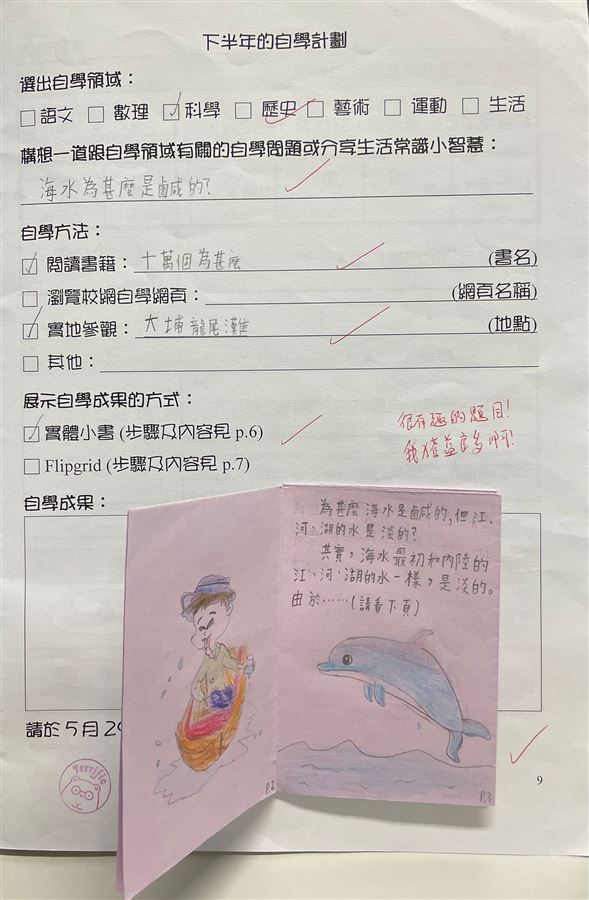 下半年的自學計劃
選出自學領域：
□語文 □數理 ☑科學 □歷史 □藝術 □運動 □生活
構想一道跟自學領域有關的自學問題或分享生活常識小智慧：
海水為甚麼是鹵咸的?
自學方法：
☑ 閱讀書籍：十萬個為甚麼 (書名)
□ 瀏覽校網自學網頁： (網頁名稱)
☑ 實地參觀：大埔龍尾灘 (地點)
□ 其他：
展示自學成果的方式：
☑實體小書 (步驟及內容見 p.6)
很有趣的題目!
我獲益良多啊!
□Flipgrid (步驟及內容見 p.7)
自學成果：
為甚麼海水是鹵咸的,但江、
河、湖的水是淡的?
其實，海水最初和內陸的
江、河、湖的水一樣，是淡的。
由於……(請看下頁)
P.2
P.3
請於5月29
Terrific
9